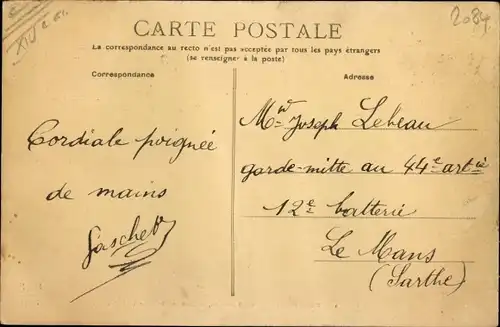 CARTE POSTALE
La correspondance au recto n'est pas acceptée par tous les pays étrangers
(se renseigner à la poste)
Correspondance
Adresse
Cordiale poignée
de mains
Mr Joseph Lebeau
garde-mitte au 44e artie
12e batterie
Le Mans
(Sarthe)